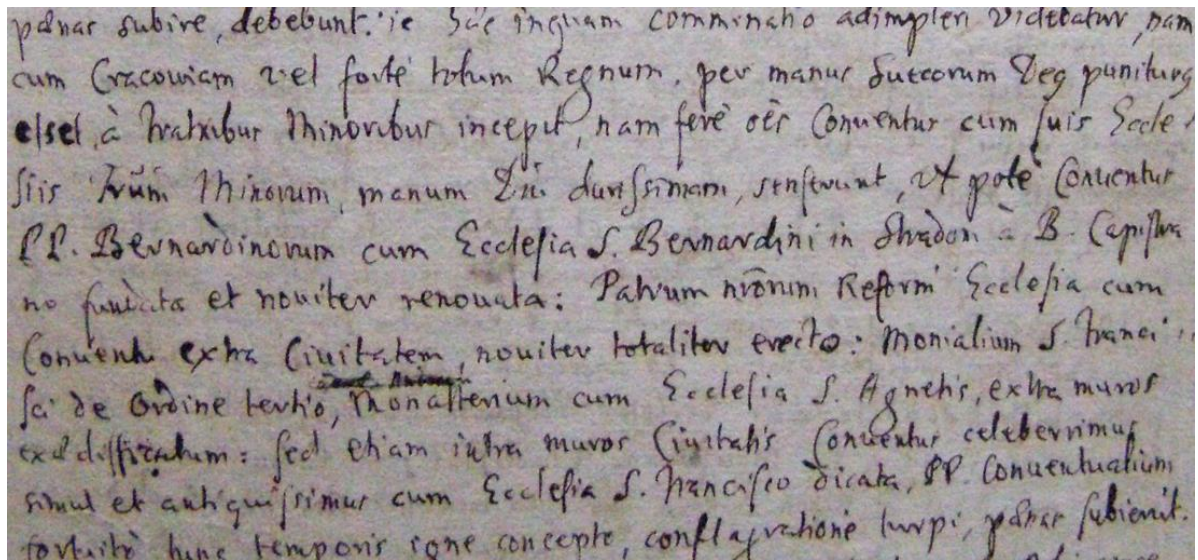 pænas subire, debebunt: ie hæc inquam comminatio adimpleri videbatur, nam
cum Cracouiam vel forte totum Regnum, per manus Suecorum Deus puniturus
esset, à Fratribus Minoribus incepit, nam ferè oēs Conuentus cum suis Eccle
siis Frūm Minorum, manum Dni durissimam, senserunt, vt pote Conuentus
PP. Bernardinorum cum Ecclesia S. Bernardini in Stradom à B. Capistra
no fundata et nouiter renouata: Patrum nrōrum Reform Ecclesia cum
Conuentu extra Ciuitatem, nouiter totaliter erecto: Monialium S. Franci
sci de Ordine tertio, Monasterium cum Ecclesia S. Agnetis, extra muros
exædifficatum: sed etiam intra muros Ciuitatis Conuentus celeberrimus
simul et antiquissimus cum Ecclesia S. Francisco dicata, PP. Conuentualium
fortuitò tunc temporis igne concepto, conflagratione turpi, pænas subierūt.